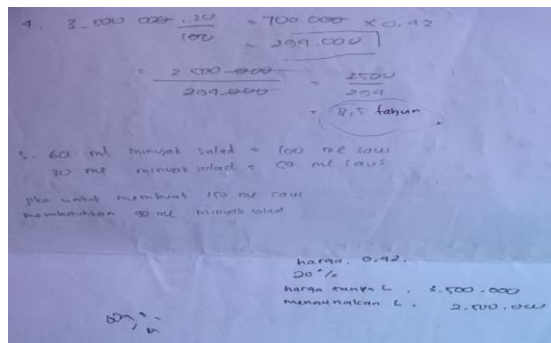 4. 3.500.000 . 20 = 700.000 × 0.42
100
= 294.000
= 2.500.000 = 2500
294.000 294
= 8,5 tahun
5. 60 ml minyak salad = 100 ml saus
30 ml minyak salad = 50 ml saus
jika untuk membuat 150 ml saus
membutuhkan 90 ml minyak salad
harga. 0.42.
20%
harga tanpa L. 3.500.000
menggunakan L. 2.500.000